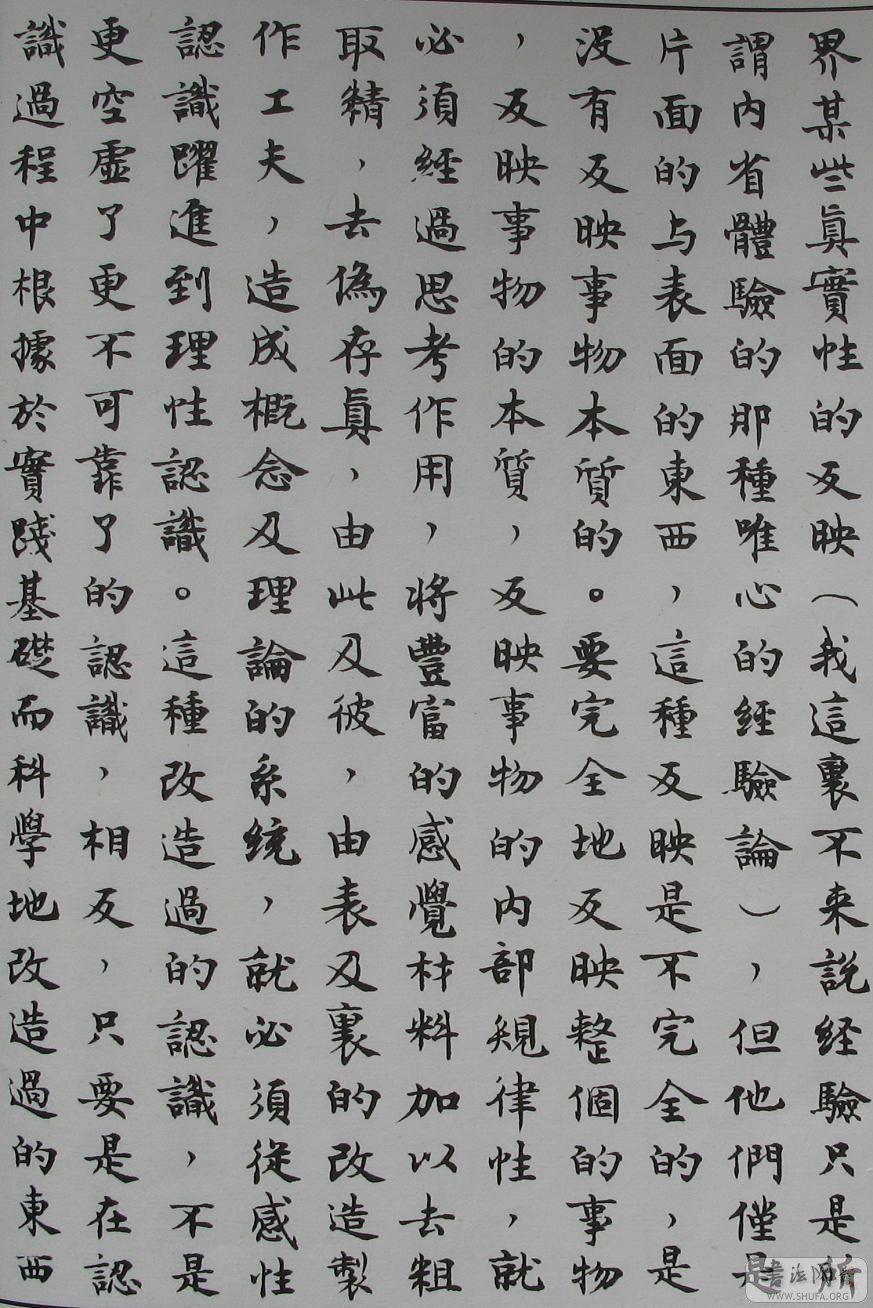 界某些眞實性的反映（我這裏不来説经驗只是所
謂内省體驗的那種唯心的經驗論），但他們僅是
片面的与表面的東西，這種反映是不完全的，是
没有反映事物本質的。要完全地反映整個的事物
，反映事物的本質，反映事物的内部規律性，就
必須經過思考作用，将豐富的感覺材料加以去粗
取精，去偽存眞，由此及彼，由表及裏的改造製
作工夫，造成概念及理論的系統，就必須従感性
認識躍進到理性認識。這種改造過的認識，不是
更空虚了更不可靠了的認識，相反，只要是在認
識過程中根據於實踐基礎而科學地改造過的東西
書法网
WWW.SHUFA.ORG